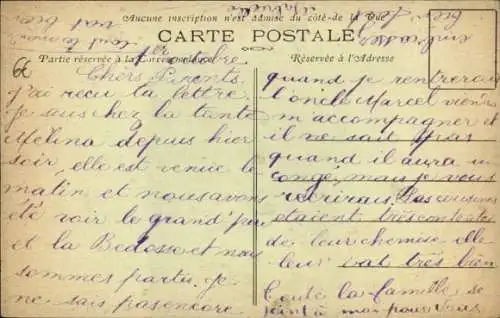 Aucune inscription n'est admise du côté de la Vue
CARTE POSTALE
Partie réservée à la Correspondance
Réservée à l'Adresse
1er octobre
Chers Parents
j'ai reçu la lettre
je suis chez la tante
Mélina depuis hier
soir, elle est venue le
matin et nous avons
été voir le grand
et la Bedosse et nous
sommes partu. je
ne sais pas encore
quand je rentrerai
l'oncle Marcel viendra
m'accompagner et
il ne sait pas
quand il aura un
congé, mais je vous
récrirai. Les cousines
étaient très contentes
de leur chemise elle
leur vat très bien
Toute la famille se
joint à moi pour vous